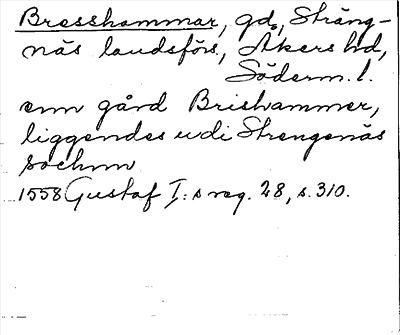 Bresshammar, gd., Sträng-
näs landsförs., Åkers hd,
Söderm. l.
enn gård Brishammer,
liggendes udi Strengenäs
sochnn
1558 Gustaf I:s reg. 28, s. 310.